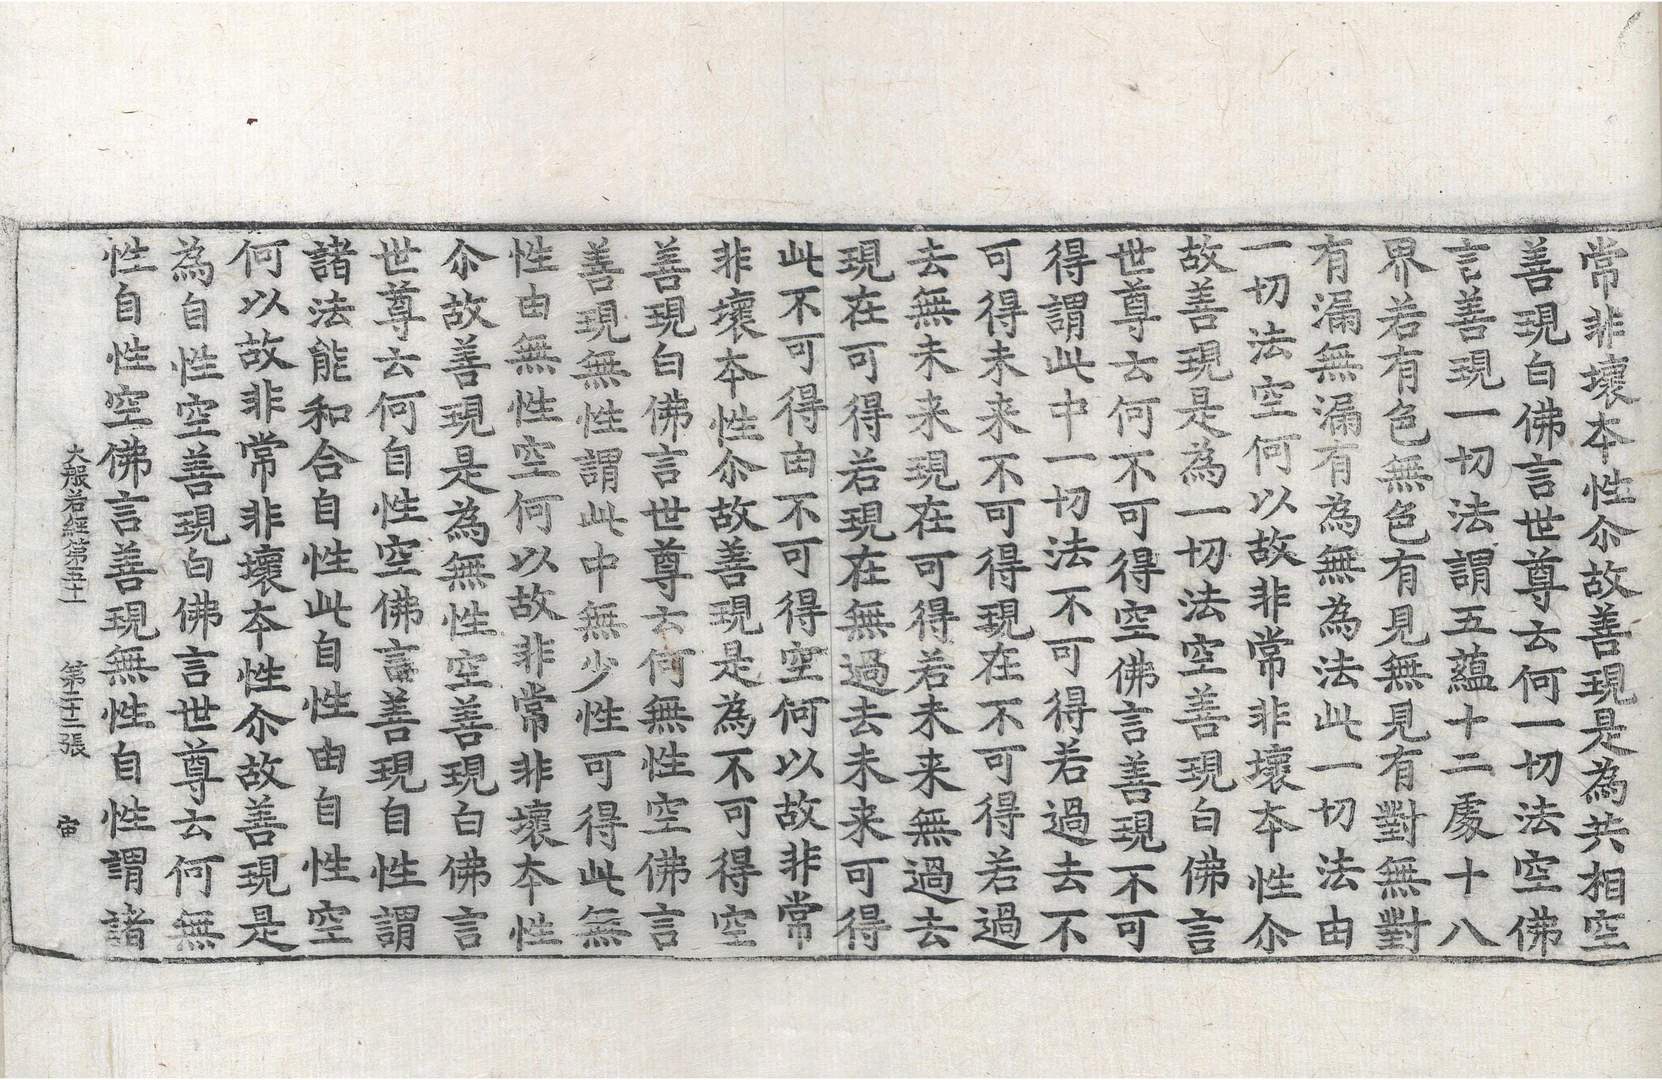 常非壞夲性尒故善現是為共相空
善現白佛言世尊云何一切法空佛
言善現一切法謂五蘊十二處十八
界若有色無色有見無見有對無對
有漏無漏有為無為法此一切法由
一切法空何以故非常非壞夲性尒
故善現是為一切法空善現白佛言
世尊云何不可得空佛言善現不可
得謂此中一切法不可得若過去不
可得未来不可得現在不可得若過
去無未来現在可得若未来無過去
現在可得若現在無過去未来可得
此不可得由不可得空何以故非常
非壞夲性尒故善現是為不可得空
善現白佛言世尊云何無性空佛言
善現無性謂此中無少性可得此無
性由無性空何以故非常非壞夲性
尒故善現是為無性空善現白佛言
世尊云何自性空佛言善現自性謂
諸法能和合自性此自性由自性空
何以故非常非壞夲性尒故善現是
為自性空善現白佛言世尊云何無
性自性空佛言善現無性自性謂諸
大般若經第五十一 第二十二張 宙